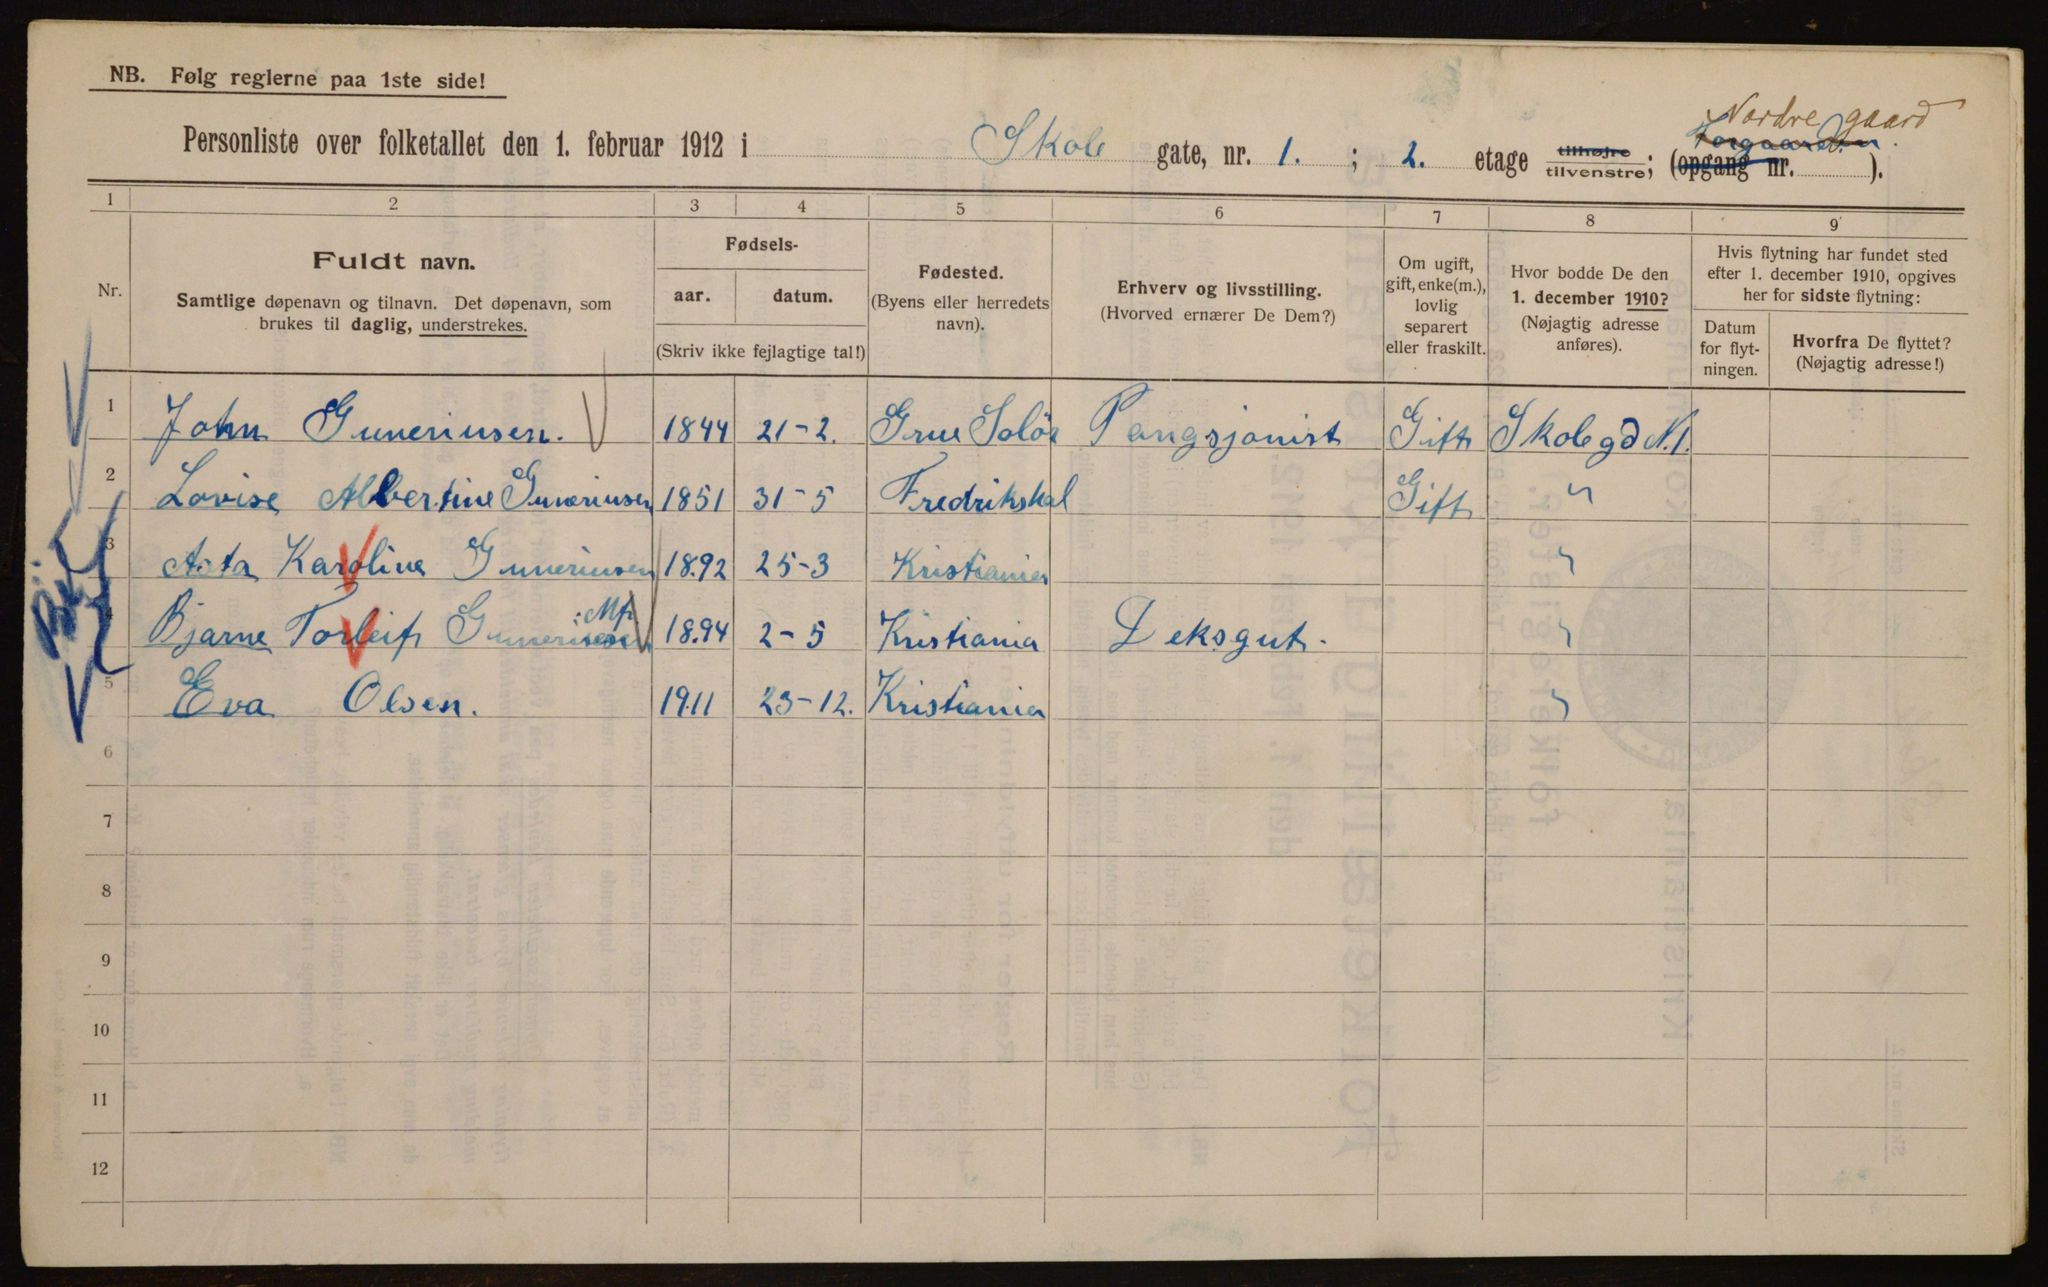 NB. Følg reglerne paa 1ste side!
Nordre gaard
Personliste over folketallet den 1. februar 1912 i Skole gate, nr. 1. ; 2. etage tilhøjre tilvenstre; (opgang nr. ).
1 2 3 4 5 6 7 8 9
Nr.
Fuldt navn.
Samtlige døpenavn og tilnavn. Det døpenavn, som
brukes til daglig, understrekes.
Fødsels-
aar. datum.
(Skriv ikke fejlagtige tal!)
Fødested.
(Byens eller herredets
navn).
Erhverv og livsstilling.
(Hvorved ernærer De Dem?)
Om ugift,
gift, enke(m.),
lovlig
separert
eller fraskilt.
Hvor bodde De den
1. december 1910?
(Nøjagtig adresse
anføres).
Hvis flytning har fundet sted
efter 1. december 1910, opgives
her for sidste flytning:
Datum
for flyt-
ningen.
Hvorfra De flyttet?
(Nøjagtig adresse!)
1 John Guneriusen. 1844 21-2. Grue Solör Pangsjonist Gift Skolegd N.1.
2 Lovise Albertine Guneriusen 1851 31-5 Fredrikshal Gift "
3 Asta Karoline Guneriusen 1892 25-3 Kristiania "
4 Bjarne Torleif Guneriusen 1894 2-5 Kristiania Deksgut. "
5 Eva Olsen. 1911 23-12. Kristiania "
6
7
8
9
10
11
12